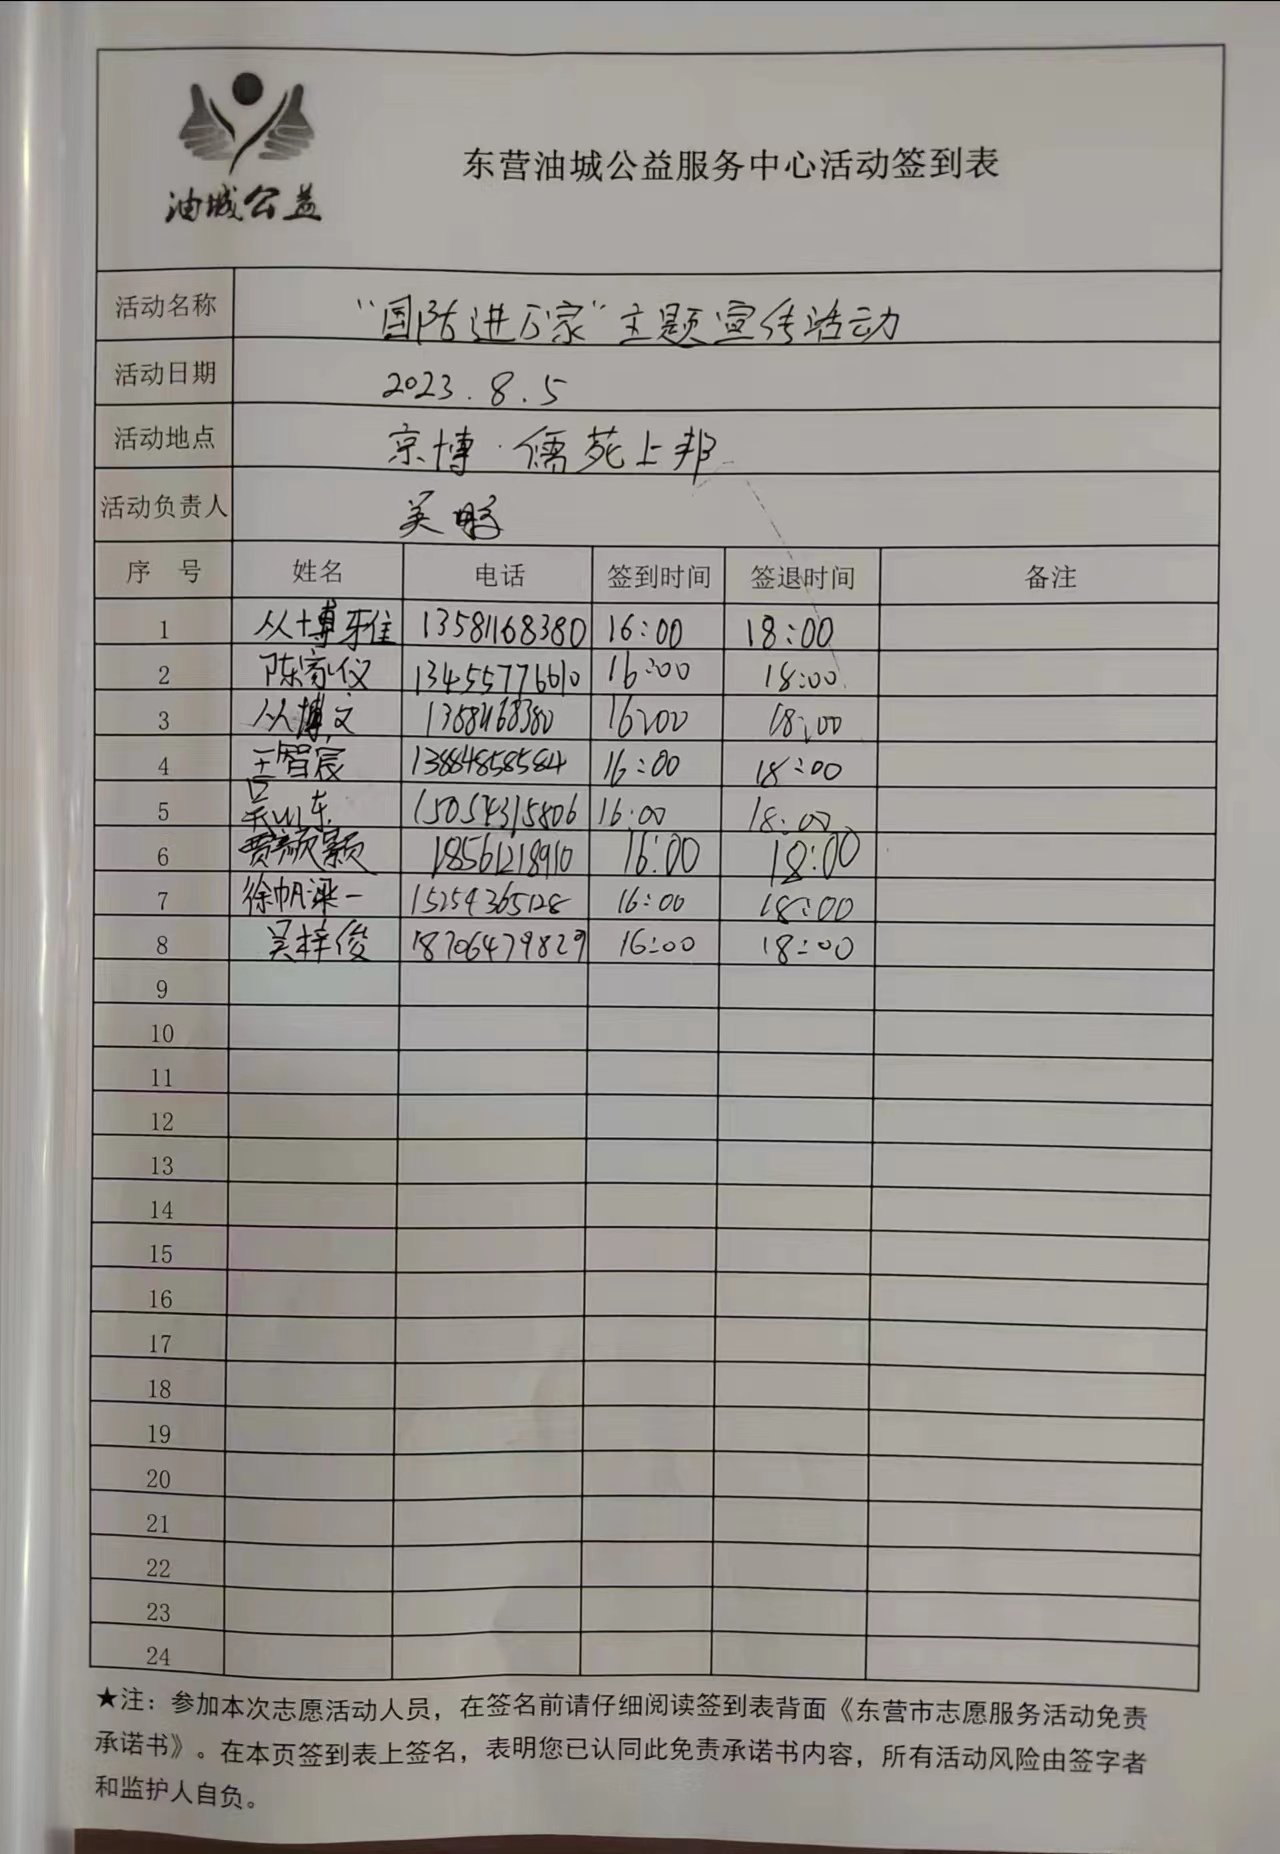 油城公益
东营油城公益服务中心活动签到表
活动名称 “国防进万家”主题宣传活动
活动日期 2023.8.5
活动地点 京博·儒苑上邦
活动负责人 吴
序 号 姓名 电话 签到时间 签退时间 备注
1 从博雅 13581168380 16:00 18:00
2 陈家仪 13455776610 16:00 18:00
3 从博文 16:00 18:00
4 王智宸 13884858584 16:00 18:00
5 吴山东 15054315806 16:00 18:00
6 18561218910 16:00 18:00
7 徐帆梁一 15254365128 16:00 18:00
8 吴梓俊 18706479829 16:00 18:00
9
10
11
12
13
14
15
16
17
18
19
20
21
22
23
24
★注：参加本次志愿活动人员，在签名前请仔细阅读签到表背面《东营市志愿服务活动免责
承诺书》。在本页签到表上签名，表明您已认同此免责承诺书内容，所有活动风险由签字者
和监护人自负。